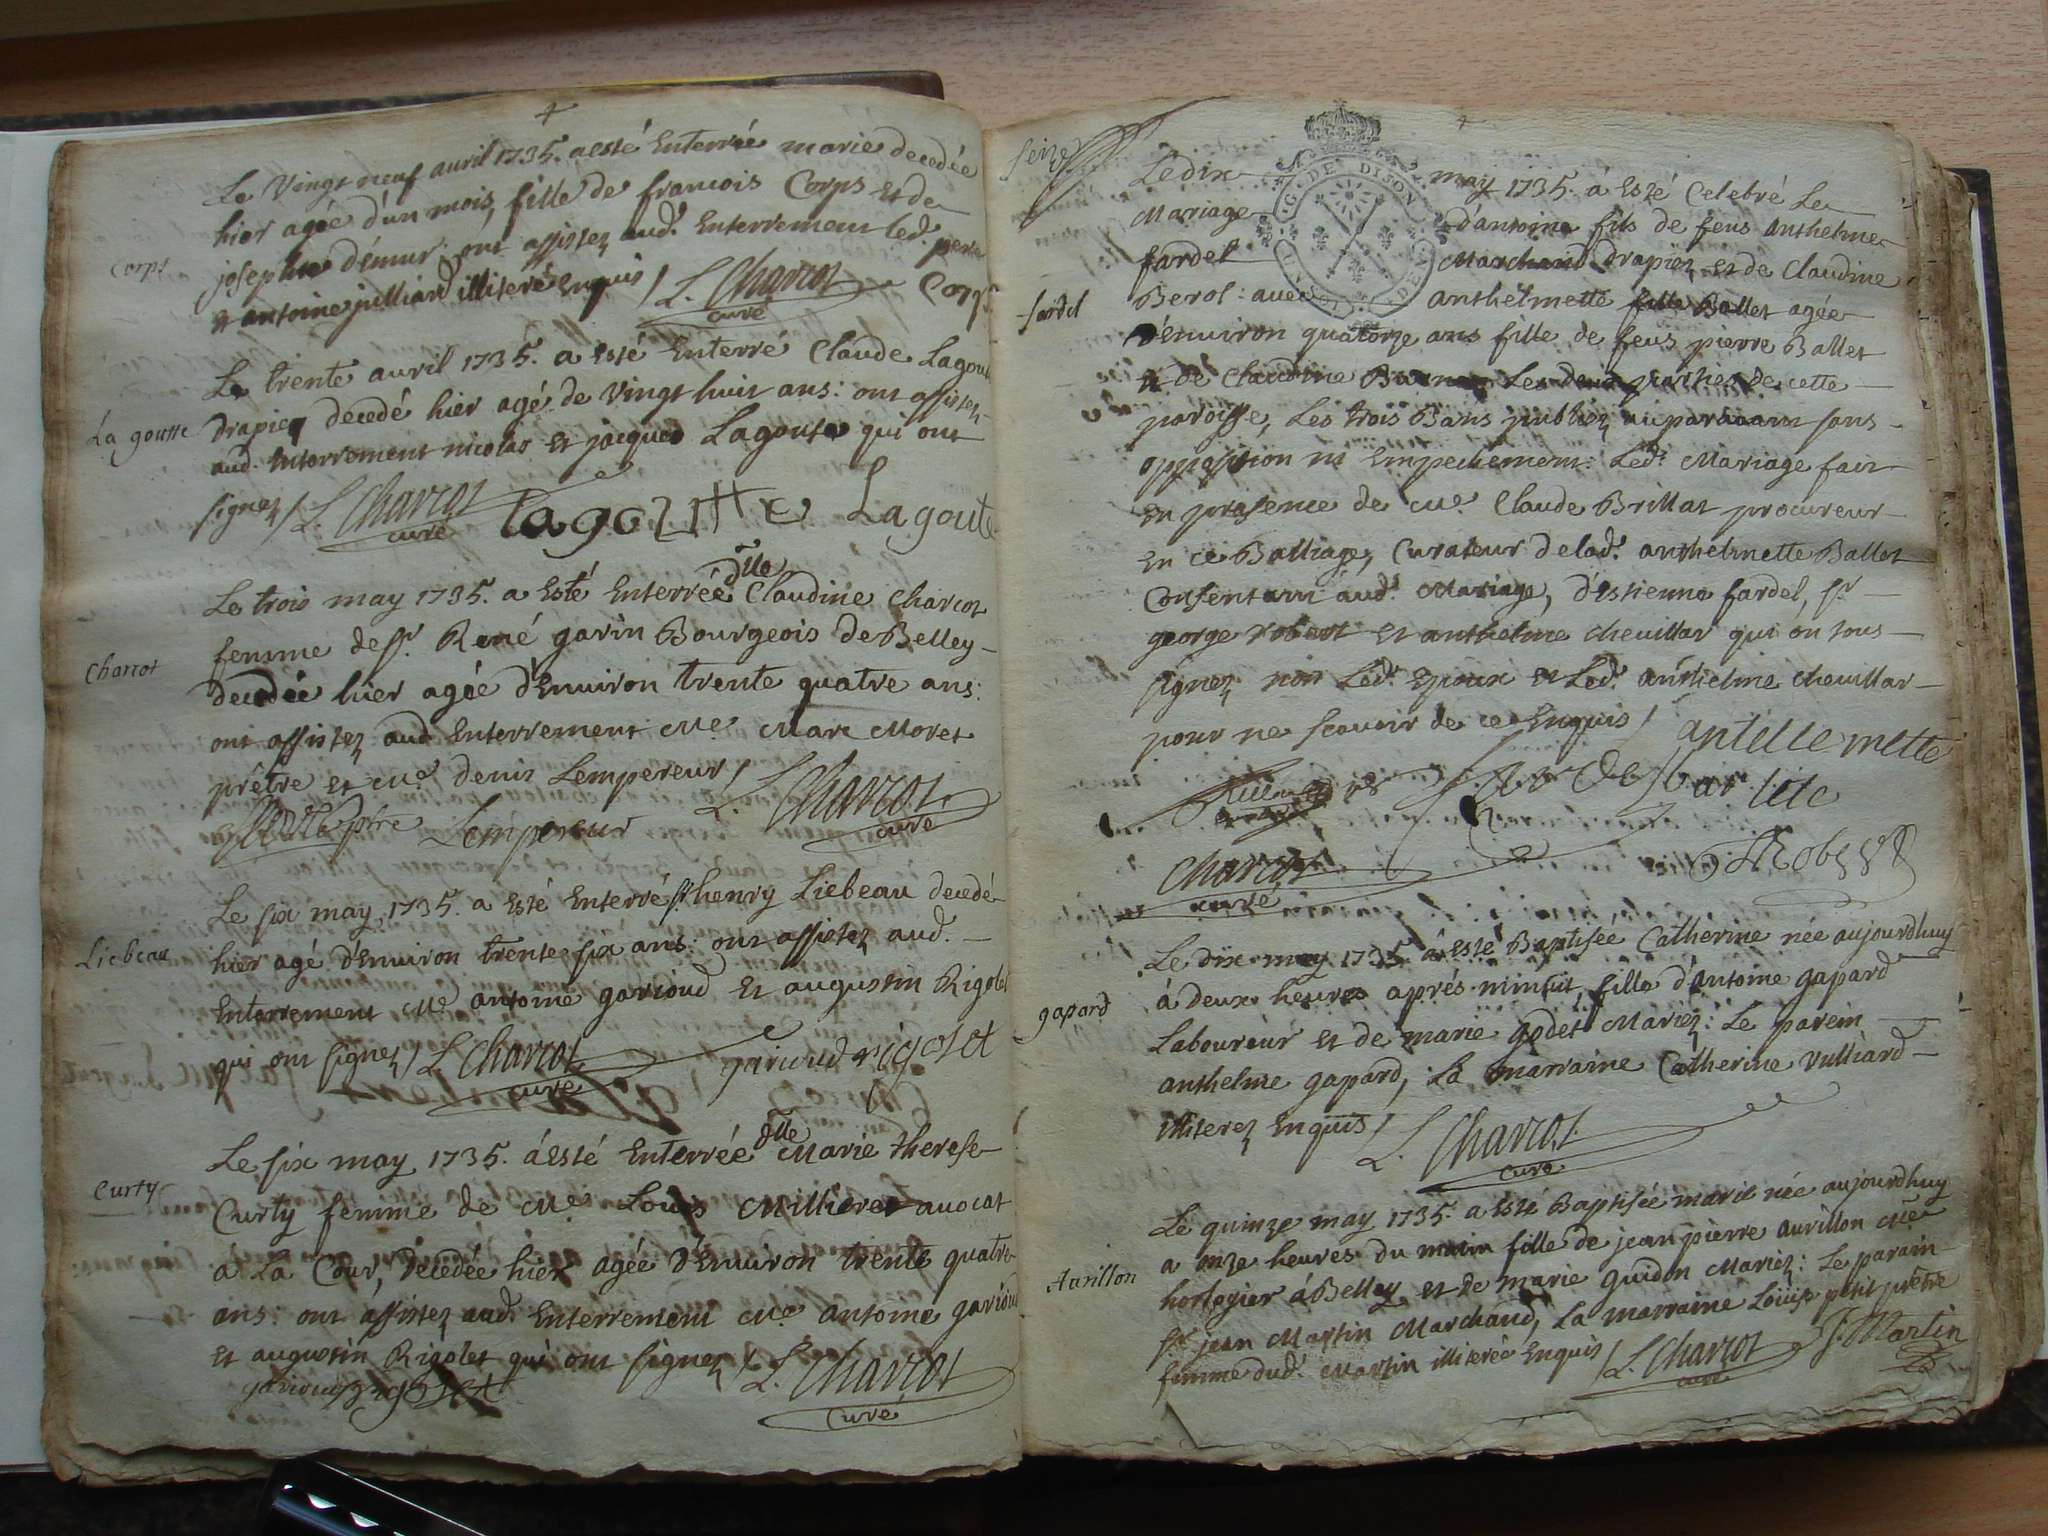 Le Vingt neuf avril 1735. a esté Enterrée marie decedée
hier agée d'un mois, fille de francois Corps et de
Corps
josephte démur: ont assistez aud. Enterrement led. pere
et antoine julliard illiterés enquis / L. Charcot curé Corps
Le trente avril 1735. a esté Enterré Claude Lagoute
La goutte
drapier decedé hier agé de Vingt huit ans: ont assistez
aud. Enterrement nicolas et jacques Lagoute qui ont
signez / L. Charcot curé lagoutte Lagoute
Le trois may 1735. a Esté Enterrée dlle Claudine Charcot
Charcot
femme de sr. René garin Bourgeois de Belley
decedée hier agée d'Environ trente quatre ans:
ont assistez aud Enterrement Me. Marc Moret
prêtre et Me. denis Lempereur /
L. Charcot curé
Moret ptre Lempereur
Le six may 1735. a Esté Enterré sr henry Liebeau decedé
Liebeau
hier agé d'Environ trente six ans: ont assistez aud.
Enterrement Me antoine garioud Et augustin Rigolet
qui ont signez / L. Charcot curé garioud rigolet
Le six may 1735. á Esté Enterrée dlle Marie therese
Curty
Curty femme de Me Louis Millieret avocat
a La Cour, decedée hier agée d'Environ trente quatre
ans: ont assistez aud. Enterrement Me antoine garioud
et augustin Rigolet qui ont signez / L. Charcot curé
garioud rigolet
seize
G. DE DIJON
Le dix may 1735. á Esté Celebré Le
Mariage d'antoine fils de feus anthelme
fardel Marchand drapier et de Claudine
fardel
Berol: avec anthelmette fille Ballet agée
d'Environ quatorze ans fille de feus pierre Ballet
et de Claudine Les deux parties de cette
paroisse, Les trois Bans publiez auparavant sans
opposition ni Empechement: Led. Mariage fait
en presence de Me. Claude Brillat procureur
en ce Balliage, Curateur de lad. anthelmette Ballet
Consentant aud. Mariage, d'estienne fardel, sr
george robert et anthelme chevillar qui on sous
signez non Led. Epoux et Led. anthelme chevillar
pour ne scavoir de ce Enquis / antellemette
Charcot curé Robert
Le dix may 1735 á esté Baptisée Catherine née aujourdhuy
á deux heures aprés minuit, fille d'antoine gapard
gapard
Laboureur et de marie godet Mariez: Le parein
anthelme gapard, La marraine Catherine vulliard
illiterez Enquis /
L. Charcot curé
Le quinze may 1735. a esté Baptisée marie née aujourdhuy
a onze heures du matin fille de jean pierre aurillon Me
Aurillon
horlogier á Belley et de marie guidon Mariez: Le parain
sr. jean Martin Marchand, La marraine Louise petit prêtre
femme dud. Martin illiterée Enquis / L. Charcot curé J. Martin